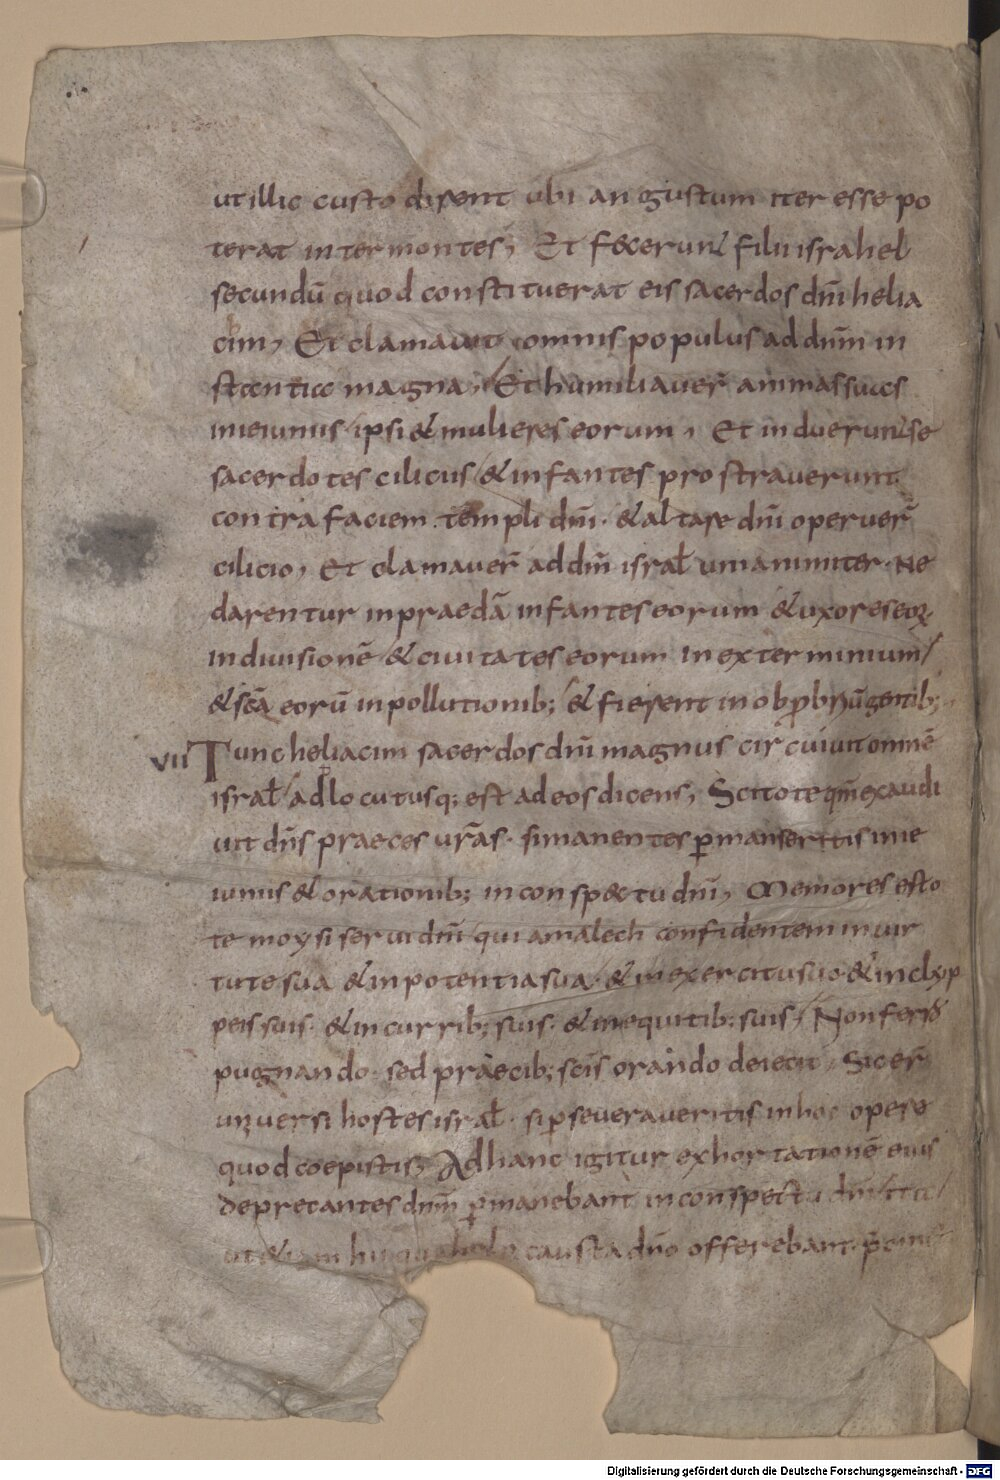 ut illic custodirent ubi angustum iter esse po
terat inter montes, Et fecerunt filii israhel
secundū quod constituerat eis sacerdos dn̄i helia
cim, Et clamavit omnis populus ad dn̄m in
stantia magna, Et humiliaver̄ animas suas
in ieiuniis ipsi & mulieres eorum, Et induerunt se
sacerdotes ciliciis & infantes prostraverunt
contra faciem templi dn̄i. & altare dn̄i operuer̄
cilicio, Et clamaver̄ ad dn̄m isral̄ unanimiter. Ne
darentur in praedā infantes eorum & uxores eorꝝ
in divisionē & civitates eorum in exterminium
& sc̄a eorū in pollutionib; & fierent in obꝓbriū gentib;
VII Tunc heliacim sacerdos dn̄i magnus circuivit omnē
isral̄ adlocutusq; est ad eos dicens, Scitote qm̄ exaudi
vit dn̄s praeces vr̄as. si manentes ꝑmanseritis in ie
iuniis & orationib; in conspectu dn̄i, Memores esto
te moysi servi dn̄i qui amalech confidentem in vir
tute sua & in potentia sua. & in exercitu suo & in clyp
peis suis. & in currib; suis. & in equitib; suis, Non ferro
pugnando. sed praecib; sc̄is orando deiecit, Sic er̄
universi hostes isral̄. si ꝑseveraveritis in hoc opere
quod coepistis, Ad hanc igitur exhortationē eius
deprecantes dn̄m ꝑmanebant in conspectu dn̄i ita
ut etiam hi qui holocausta dn̄o offerebant
Digitalisierung gefördert durch die Deutsche Forschungsgemeinschaft - DFG